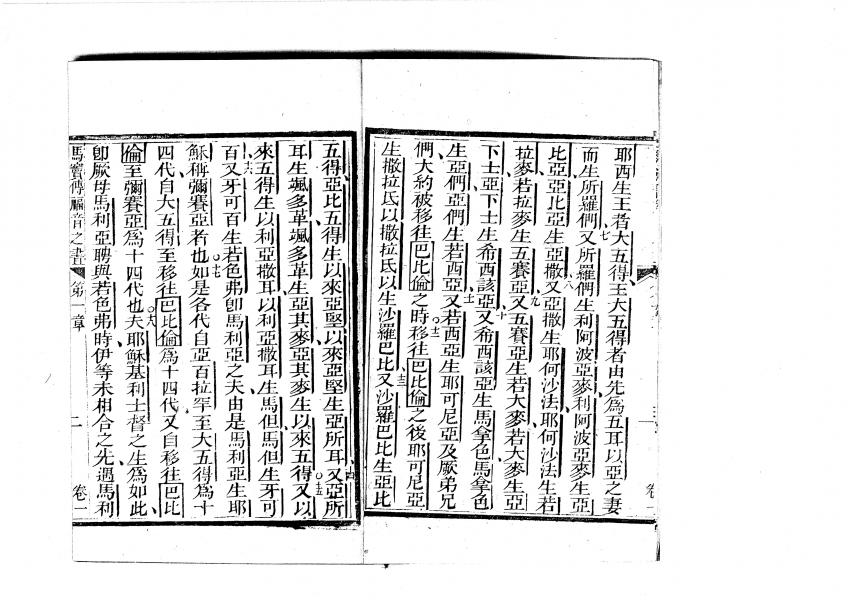 耶西生王者大五得王大五得者由先為五耳以亞之妻
七
而生所羅們又所羅們生利阿波亞麥利阿波亞麥生亞
比亞亞比亞生亞撒又亞撒生耶何沙法耶何沙法生若
八
拉麥若拉麥生五賽亞又五賽亞生若大麥若大麥生亞
九
下士亞下士生希西該亞又希西該亞生馬拿色馬拿色
十
生亞們亞們生若西亞又若西亞生耶可尼亞及厥弟兄
十一
們大約被移往巴比倫之時移往巴比倫之後耶可尼亞
十二
生撒拉氐以撒拉氐以生沙羅巴比又沙羅巴比生亞比
十三
五得亞比五得生以來亞堅以來亞堅生亞所耳又亞所
十四
耳生颯多革颯多革生亞其麥亞其麥生以來五得又以
十五
來五得生以利亞撒耳以利亞撒耳生馬但馬但生牙可
百又牙可百生若色弗卽馬利亞之夫由是馬利亞生耶
十六
穌稱彌賽亞者也如是各代自亞百拉罕至大五得為十
十七
四代自大五得至移往巴比倫為十四代又自移往巴比
倫至彌賽亞為十四代也夫耶穌基利士督之生為如此
十八
卽厥母馬利亞聘與若色弗時伊等未相合之先遇馬利
馬竇傳福音之書 第一章 二 卷一